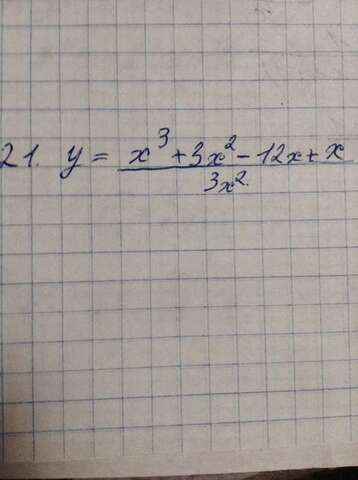 21. y = x³ + 3x² - 12x + x
3x².